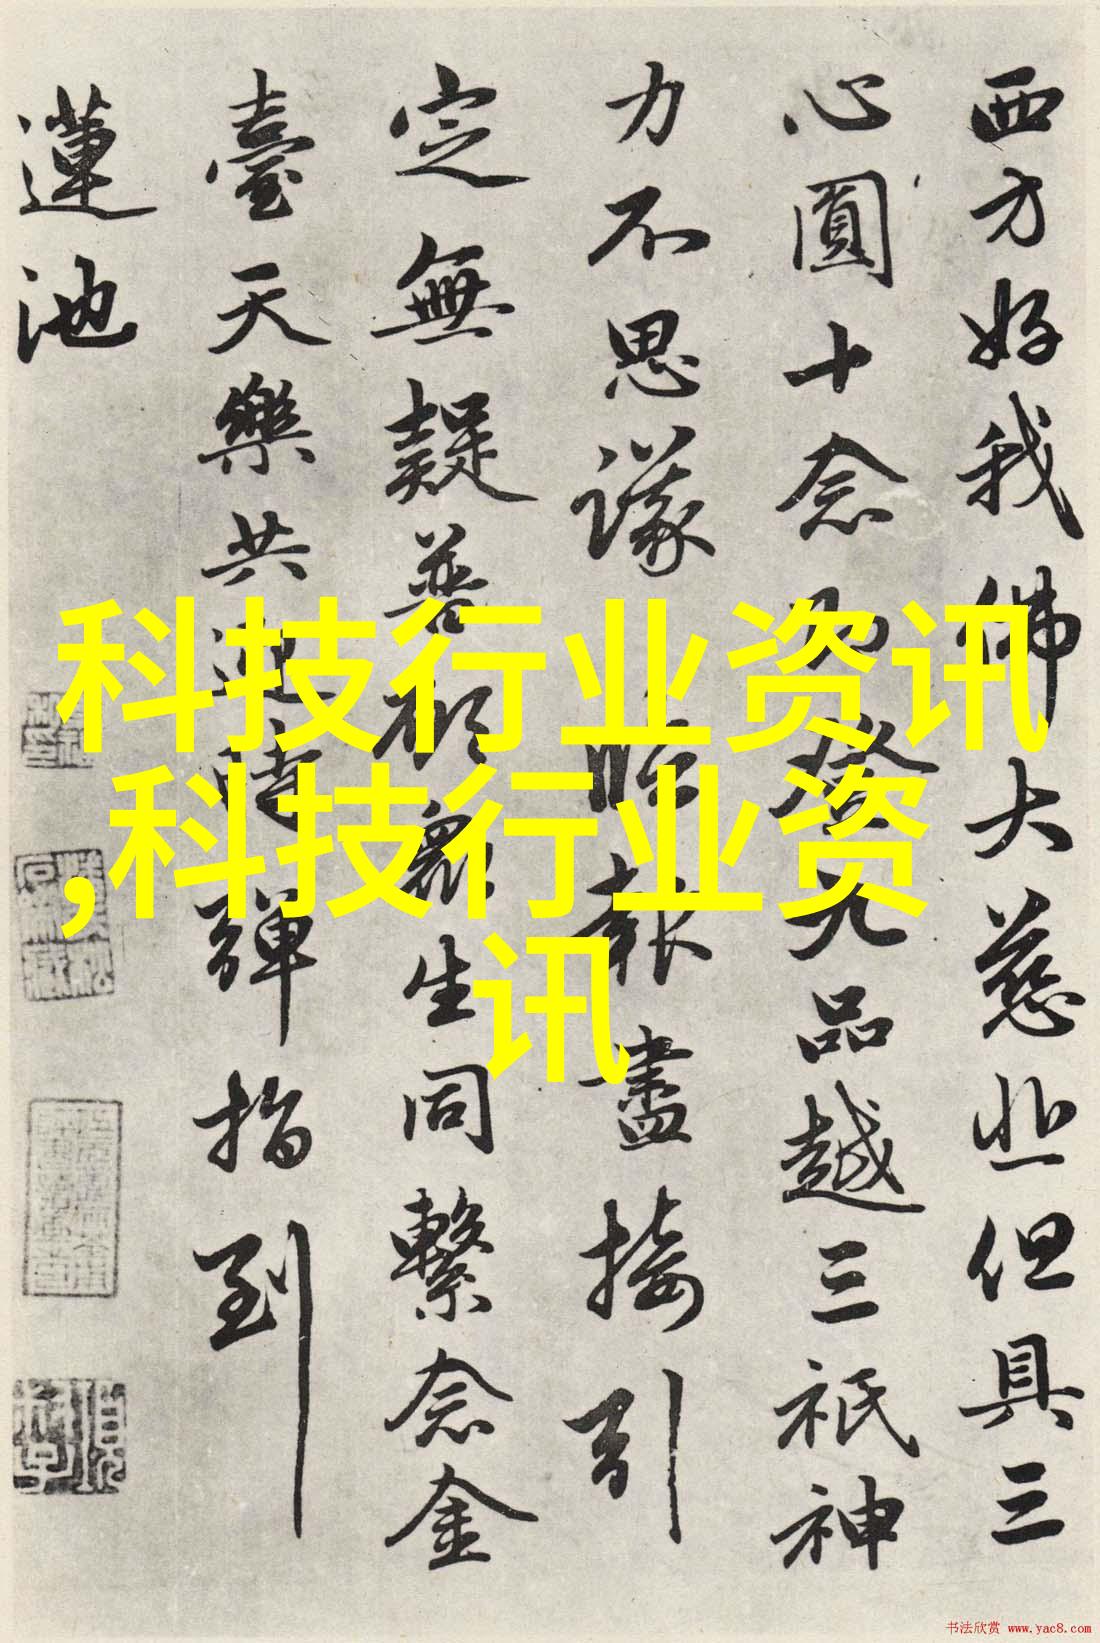 西方好我佛大慈悲但具三
心圓十念乃登九品越三祇神
力不思議臨報盡接引
定無疑普願眾生同繫念金
臺天樂共迎時彈指到
蓮池
科技行业资讯
,科技行业资
讯
书法欣赏 www.yac8.com